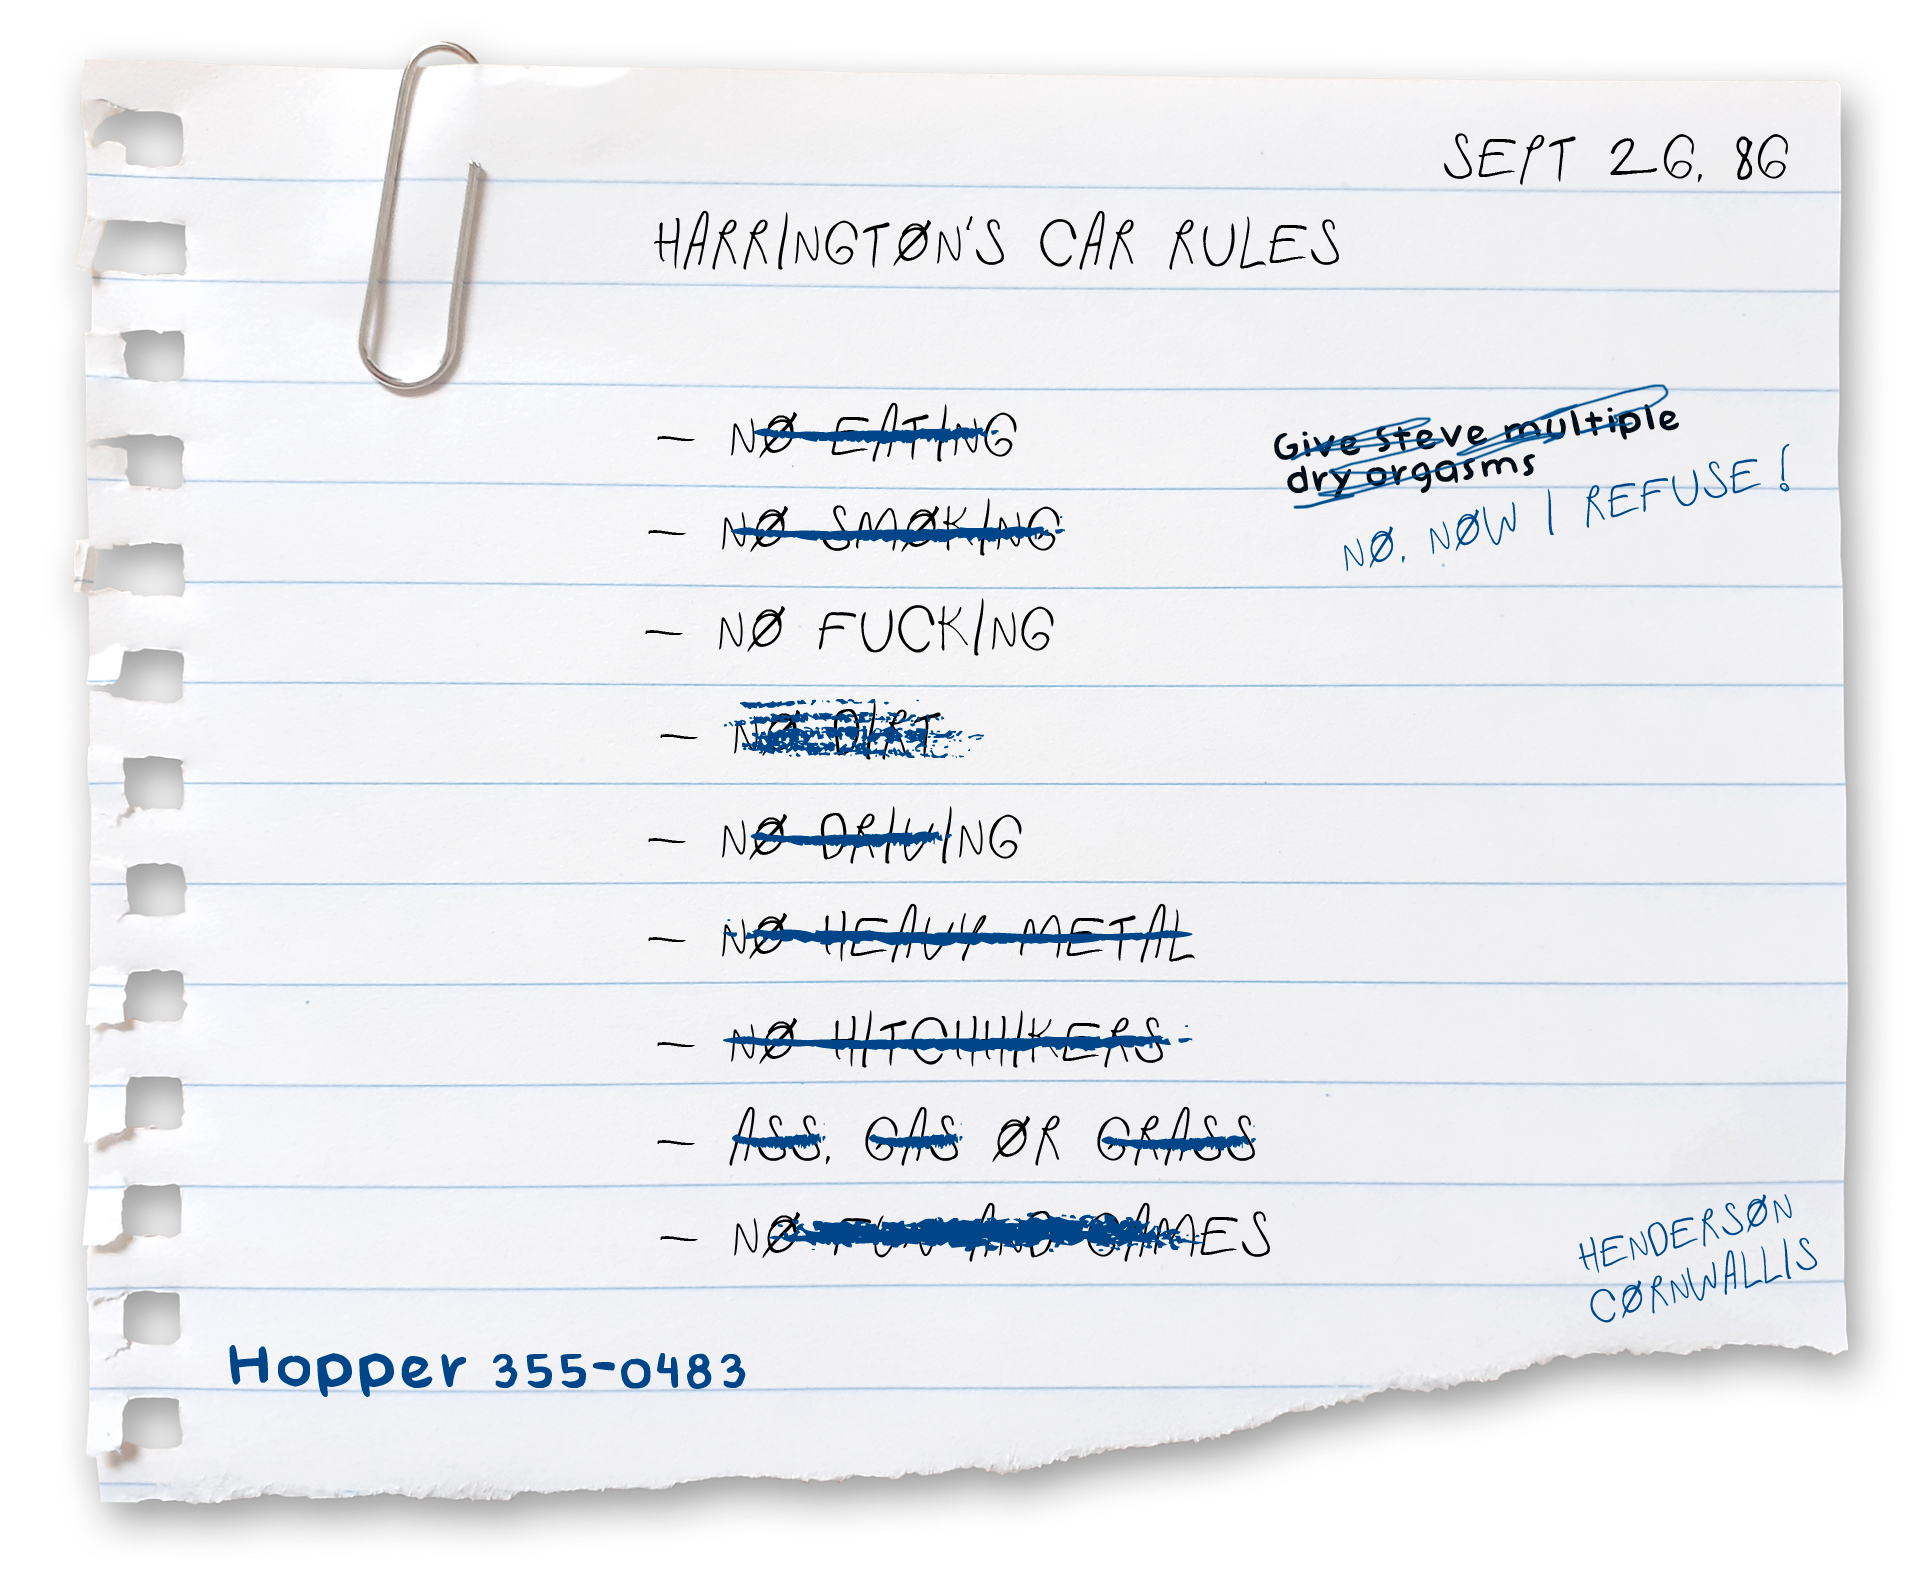 SEPT 26, 86
HARRINGTØN'S CAR RULES
— NØ EATING
Give Steve multiple
dry orgasms
NØ. NØW I REFUSE!
— NØ SMØKING
— NØ FUCKING
— NØ DIRT
— NØ DRIVING
— NØ HEAVY METAL
— NØ HITCHHIKERS
— ASS, GAS ØR GRASS
— NØ FUN AND GAMES
HENDERSØN
CØRNWALLIS
Hopper 355-0483